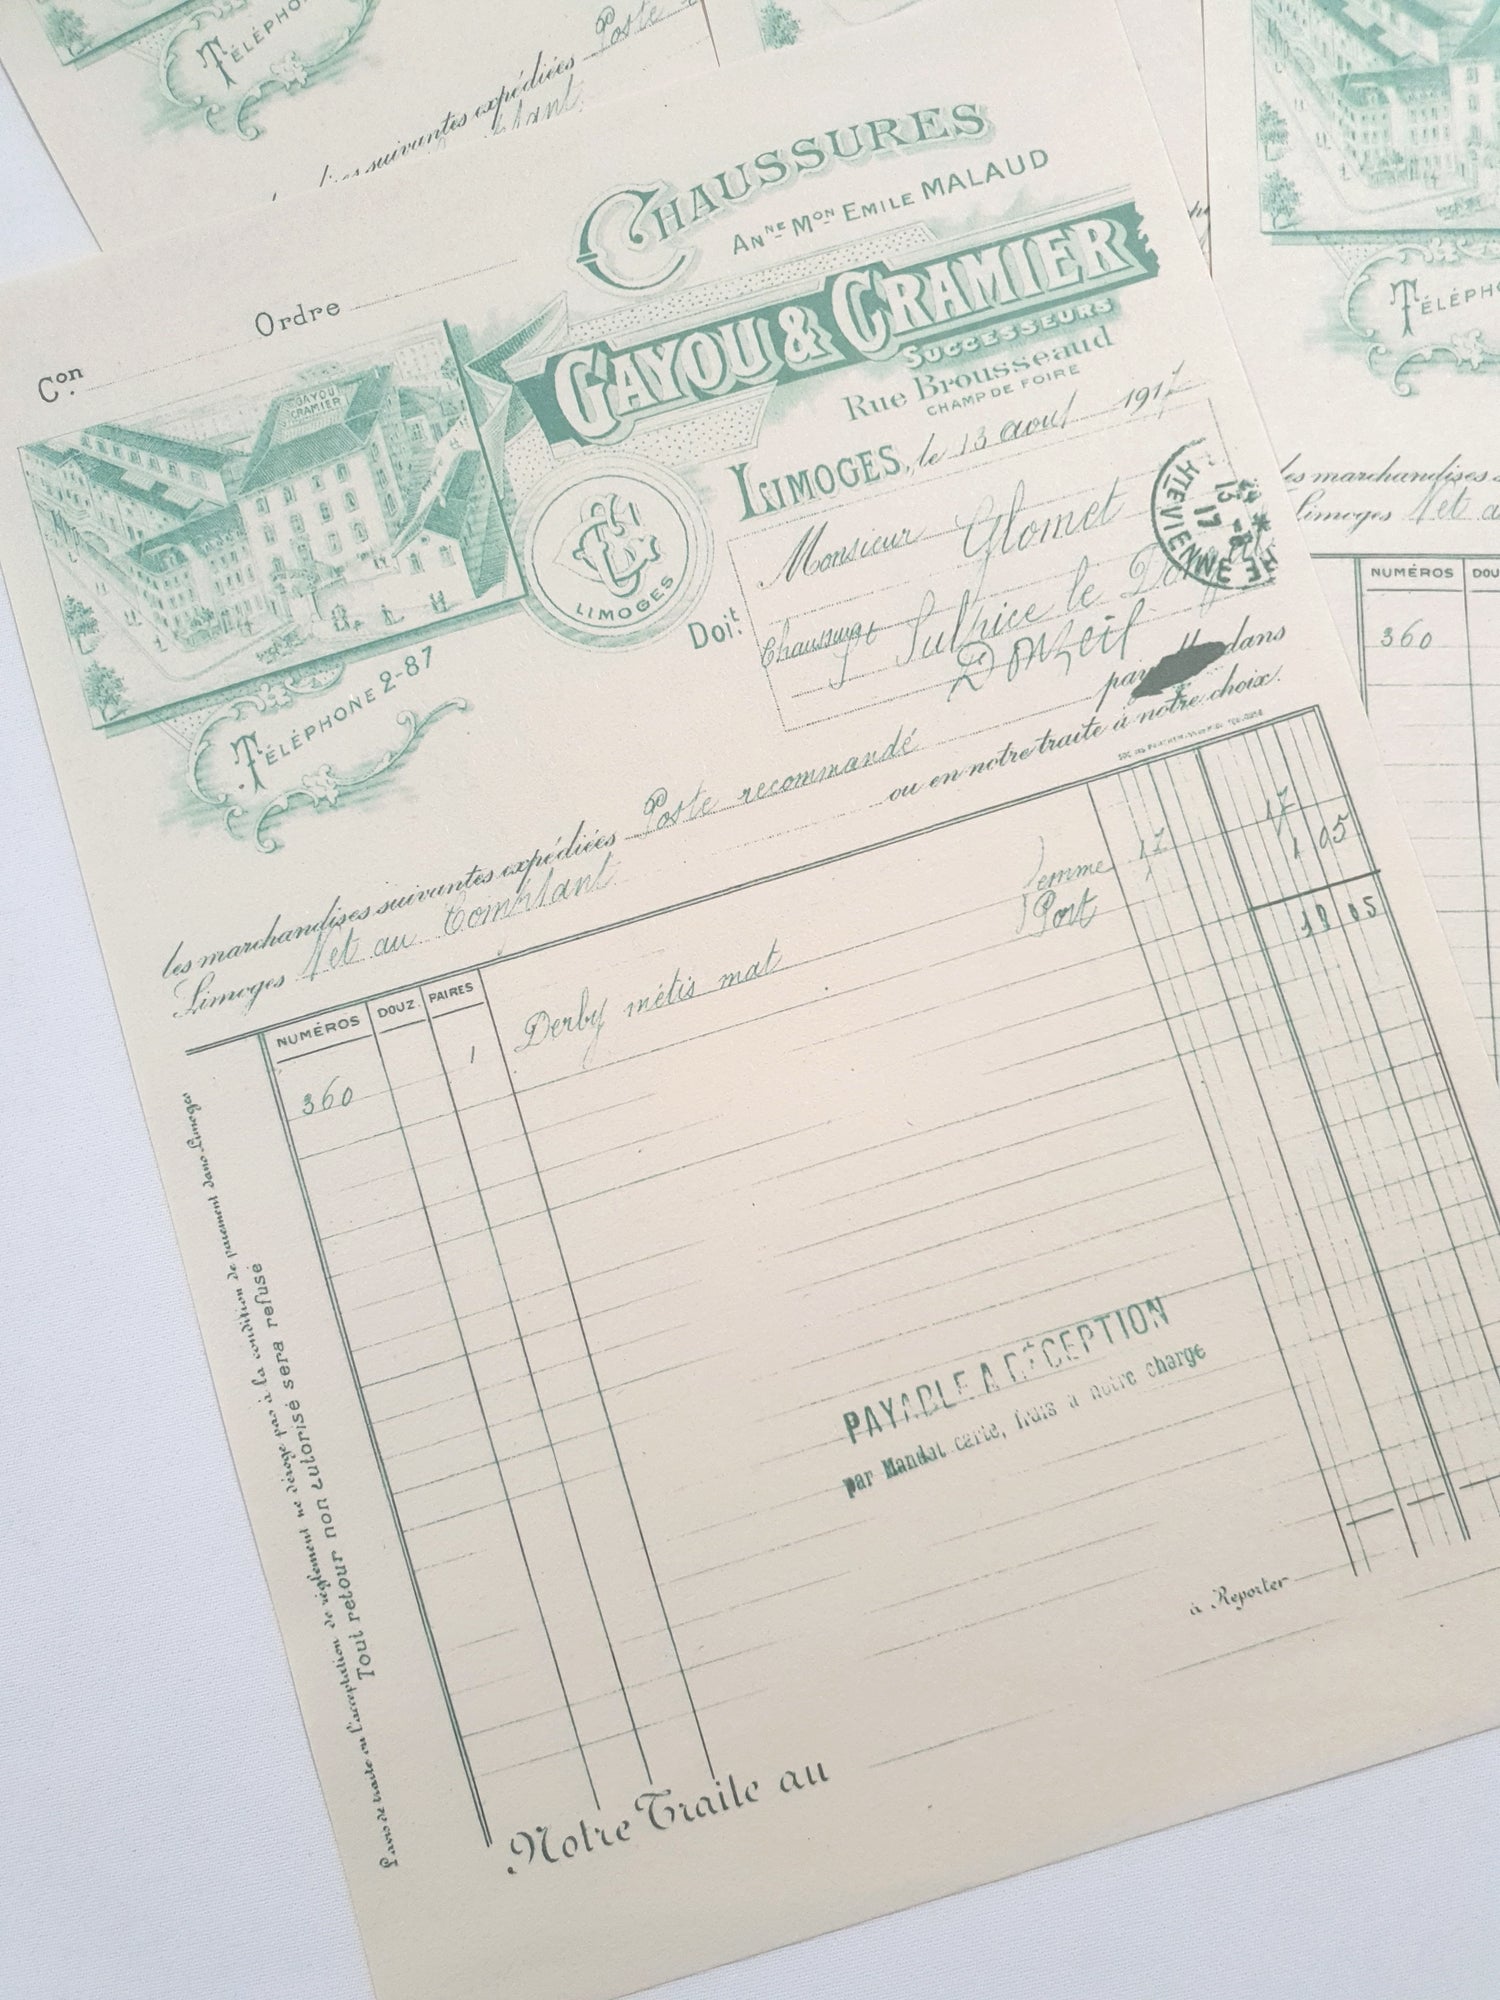 TÉLÉPHO
suivantes expédiées Poste
Chaussures
Anne Mon Emile MALAUD
GAYOU & CRAMIER
SUCCESSEURS
Rue Brousseaud
CHAMP DE FOIRE
Con
Ordre
GAYOU
CRAMIER
LIMOGES
LIMOGES, le 13 aout 1917
HTE VIENNE
13 -8
17
Doit
Monsieur Glomet
Chaussures
St Sulpice le Donzeil
Donzeil
TÉLÉPHONE 2-87
les marchandises suivantes expédiées Poste recommandé
dans
Limoges Net au Comptant ou en notre traite à notre choix.
NUMÉROS DOUZ. PAIRES
360 1 Derby métis mat femme 17 17
Port 1 05
18 05
PAYABLE A RÉCEPTION
par Mandat carte, frais à notre charge
L'avis de traite ou l'acceptation de règlement ne déroge pas à la condition de paiement dans Limoges
Tout retour non autorisé sera refusé
à Reporter
Notre Traite au
TÉLÉPHO
les marchandises
Limoges Net a
NUMÉROS DOU
360